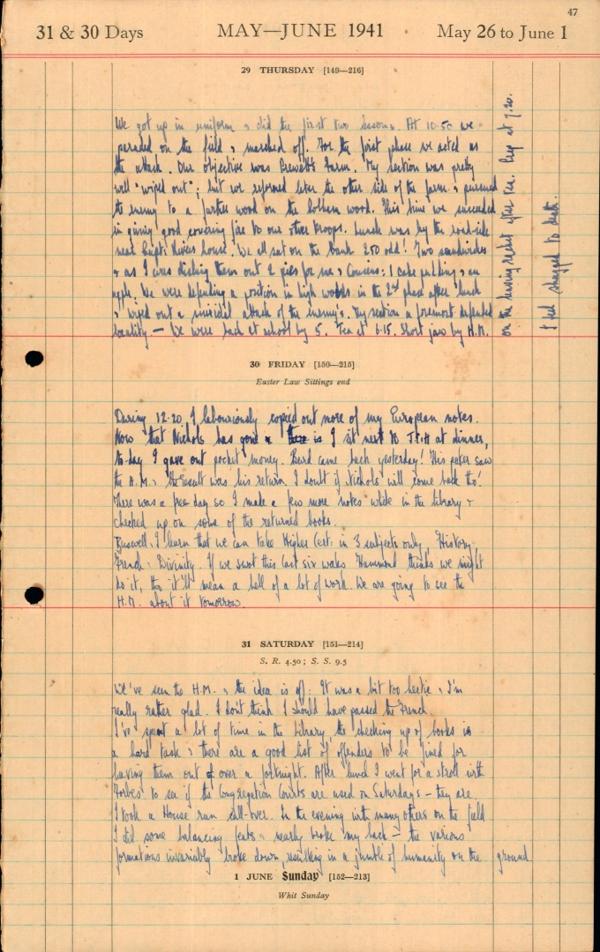 47
31 & 30 Days MAY—JUNE 1941 May 26 to June 1
29 THURSDAY [149—216]
We got up in uniform & did the first two lessons. At 10-50 we
paraded on the field & marched off. For the first phase we acted as
the attack. Our objective was Farm. My section was pretty
well "wiped out"; but we reformed later the other side of the farm & pursued
the enemy to a further wood on the bottom wood. This time we succeeded
in giving good covering fire to our other troops. Lunch was by the road-side
near house. We all sat on the bank 250 odd! Two sandwiches
& as I was dishing them out 2 pies for me & Cousens: 1 cake pudding & an
apple. We were defending a position in high woods in the 2nd phase after lunch
& wiped out a suicidal attack of the enemy's. My section a foremost defended
locality — We were back at school by 5. Tea at 6-15. Short jaw by H.M.
on the having rested after tea. Prep at 7.20.
I feel shagged to death.
30 FRIDAY [150—215]
Easter Law Sittings end
During 12-20 I labouriously copied out more of my European notes.
Now that Nichols has gone I sit next to at dinner,
to-day I gave out pocket money. Beird came back yesterday! His pater saw
the H.M. The result was his return. I doubt if Nichols will come back tho'.
There was a free day so I made a few more notes while in the library &
checked up on some of the returned books.
Buswell & I learn that we can take Higher Cert: in 3 subjects only, History,
French & Divinity. If we swot this last six weeks Hammond thinks we might
do it, tho' it'll mean a hell of a lot of work. We are going to see the
H.M. about it tomorrow.
31 SATURDAY [151—214]
S. R. 4.50; S. S. 9.5
We've seen the H.M. & the idea is off. It was a bit too hectic & I'm
really rather glad. I don't think I should have passed the French.
I've spent a lot of time in the library the checking up of books is
a hard task & there are a good list of offenders to be fined for
having them out of over a fortnight. After lunch I went for a stroll with
Forbes to see if the Congregation Courts are used on Saturdays — they are.
I took a House run all-over. In the evening with many others on the field
I did some balancing feats & nearly broke my back — the various
formations invariably broke down, resulting in a jumble of humanity on the ground.
1 JUNE Sunday [152—213]
Whit Sunday